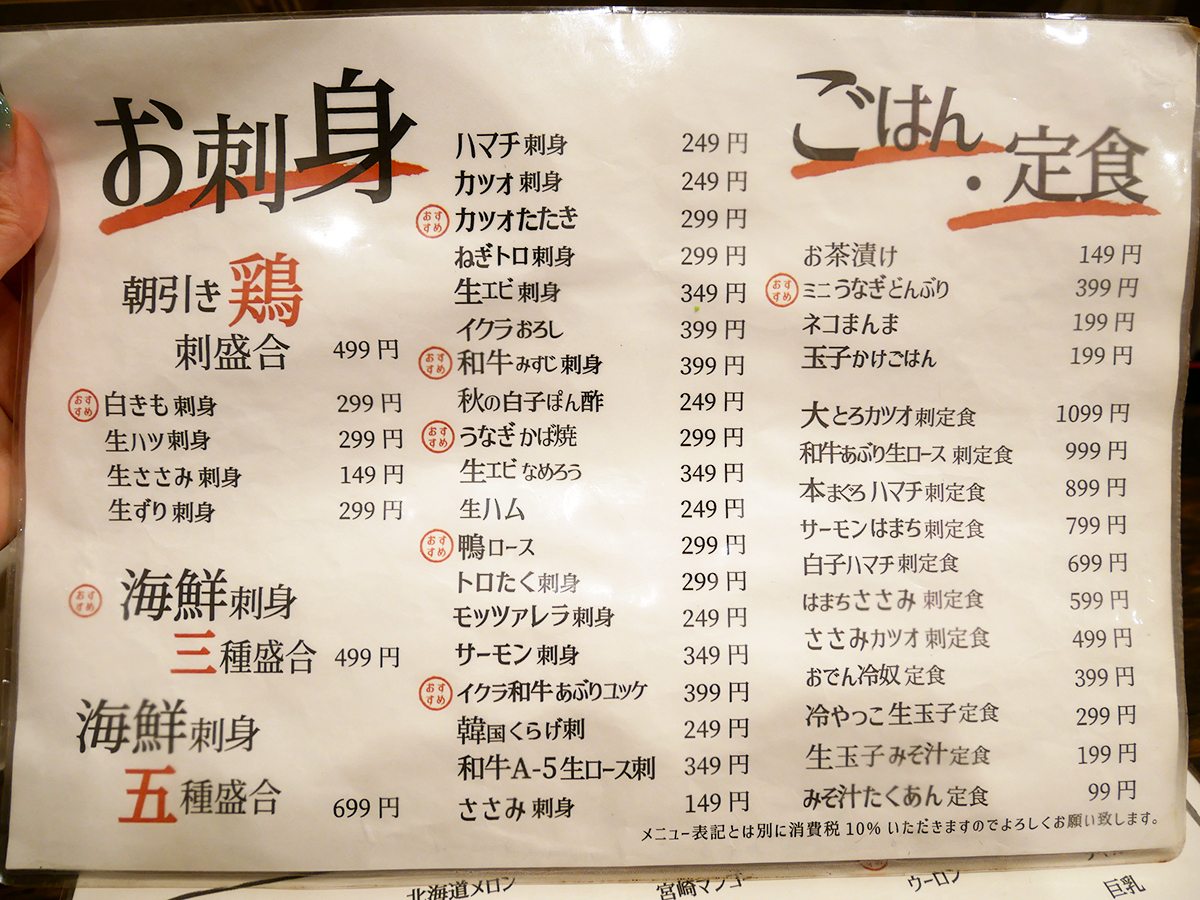 お刺身
朝引き鶏
刺盛合 499円
おすすめ 白きも刺身 299円
生ハツ刺身 299円
生ささみ刺身 149円
生ずり刺身 299円
おすすめ 海鮮刺身
三種盛合 499円
海鮮刺身
五種盛合 699円
ハマチ刺身 249円
カツオ刺身 249円
おすすめ カツオたたき 299円
ねぎトロ刺身 299円
生エビ刺身 349円
イクラおろし 399円
おすすめ 和牛みすじ刺身 399円
秋の白子ぽん酢 249円
おすすめ うなぎかば焼 299円
生エビなめろう 349円
生ハム 249円
おすすめ 鴨ロース 299円
トロたく刺身 299円
モッツァレラ刺身 249円
サーモン刺身 349円
おすすめ イクラ和牛あぶりユッケ 399円
韓国くらげ刺 249円
和牛A-5生ロース刺 349円
ささみ刺身 149円
ごはん・定食
お茶漬け 149円
おすすめ ミニうなぎどんぶり 399円
ネコまんま 199円
玉子かけごはん 199円
大とろカツオ刺定食 1099円
和牛あぶり生ロース 刺定食 999円
本まぐろハマチ刺定食 899円
サーモンはまち刺定食 799円
白子ハマチ刺定食 699円
はまちささみ 刺定食 599円
ささみカツオ刺定食 499円
おでん冷奴定食 399円
冷やっこ生玉子定食 299円
生玉子みそ汁定食 199円
みそ汁たくあん定食 99円
メニュー表記とは別に消費税10%いただきますのでよろしくお願い致します。
北海道メロン 宮崎マンゴー ウーロン 巨乳